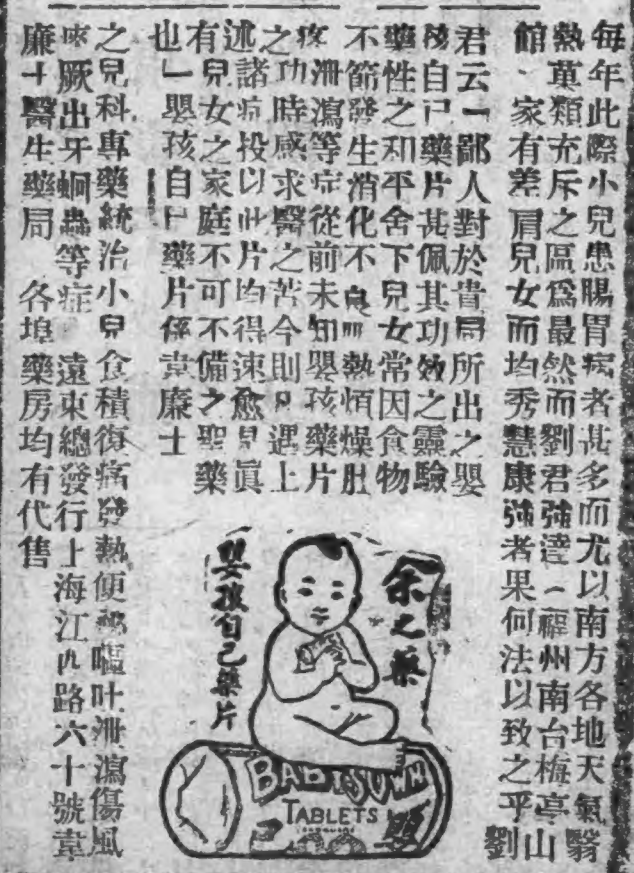 每年此際小兒患腸胃病者甚多而尤以南方各地天氣翳
熱菓類充斥之區爲最然而劉君强達（福州南台梅亭山
館）家有差肩兒女而均秀慧康强者果何法以致之乎劉
君云「鄙人對於貴局所出之嬰
孩自己藥片甚佩其功效之靈驗
藥性之和平舍下兒女常因食物
不節發生消化不良熱煩燥肚
疼泄瀉等症從前未知嬰孩藥片
之功時感求醫之苦今則凡遇上
述諸症投以此片均得速愈眞
有兒女之家庭不可不備之聖藥
也」嬰孩自己藥片係韋廉士
之兒科專藥統治小兒食積腹痛發熱便秘嘔吐泄瀉傷風
厥出牙蛔蟲等症 遠東總發行上海江西路六十號韋
廉士醫生藥局 各埠藥房均有代售
余之藥
嬰孩自己藥片
BABY'S OWN
TABLETS
嬰